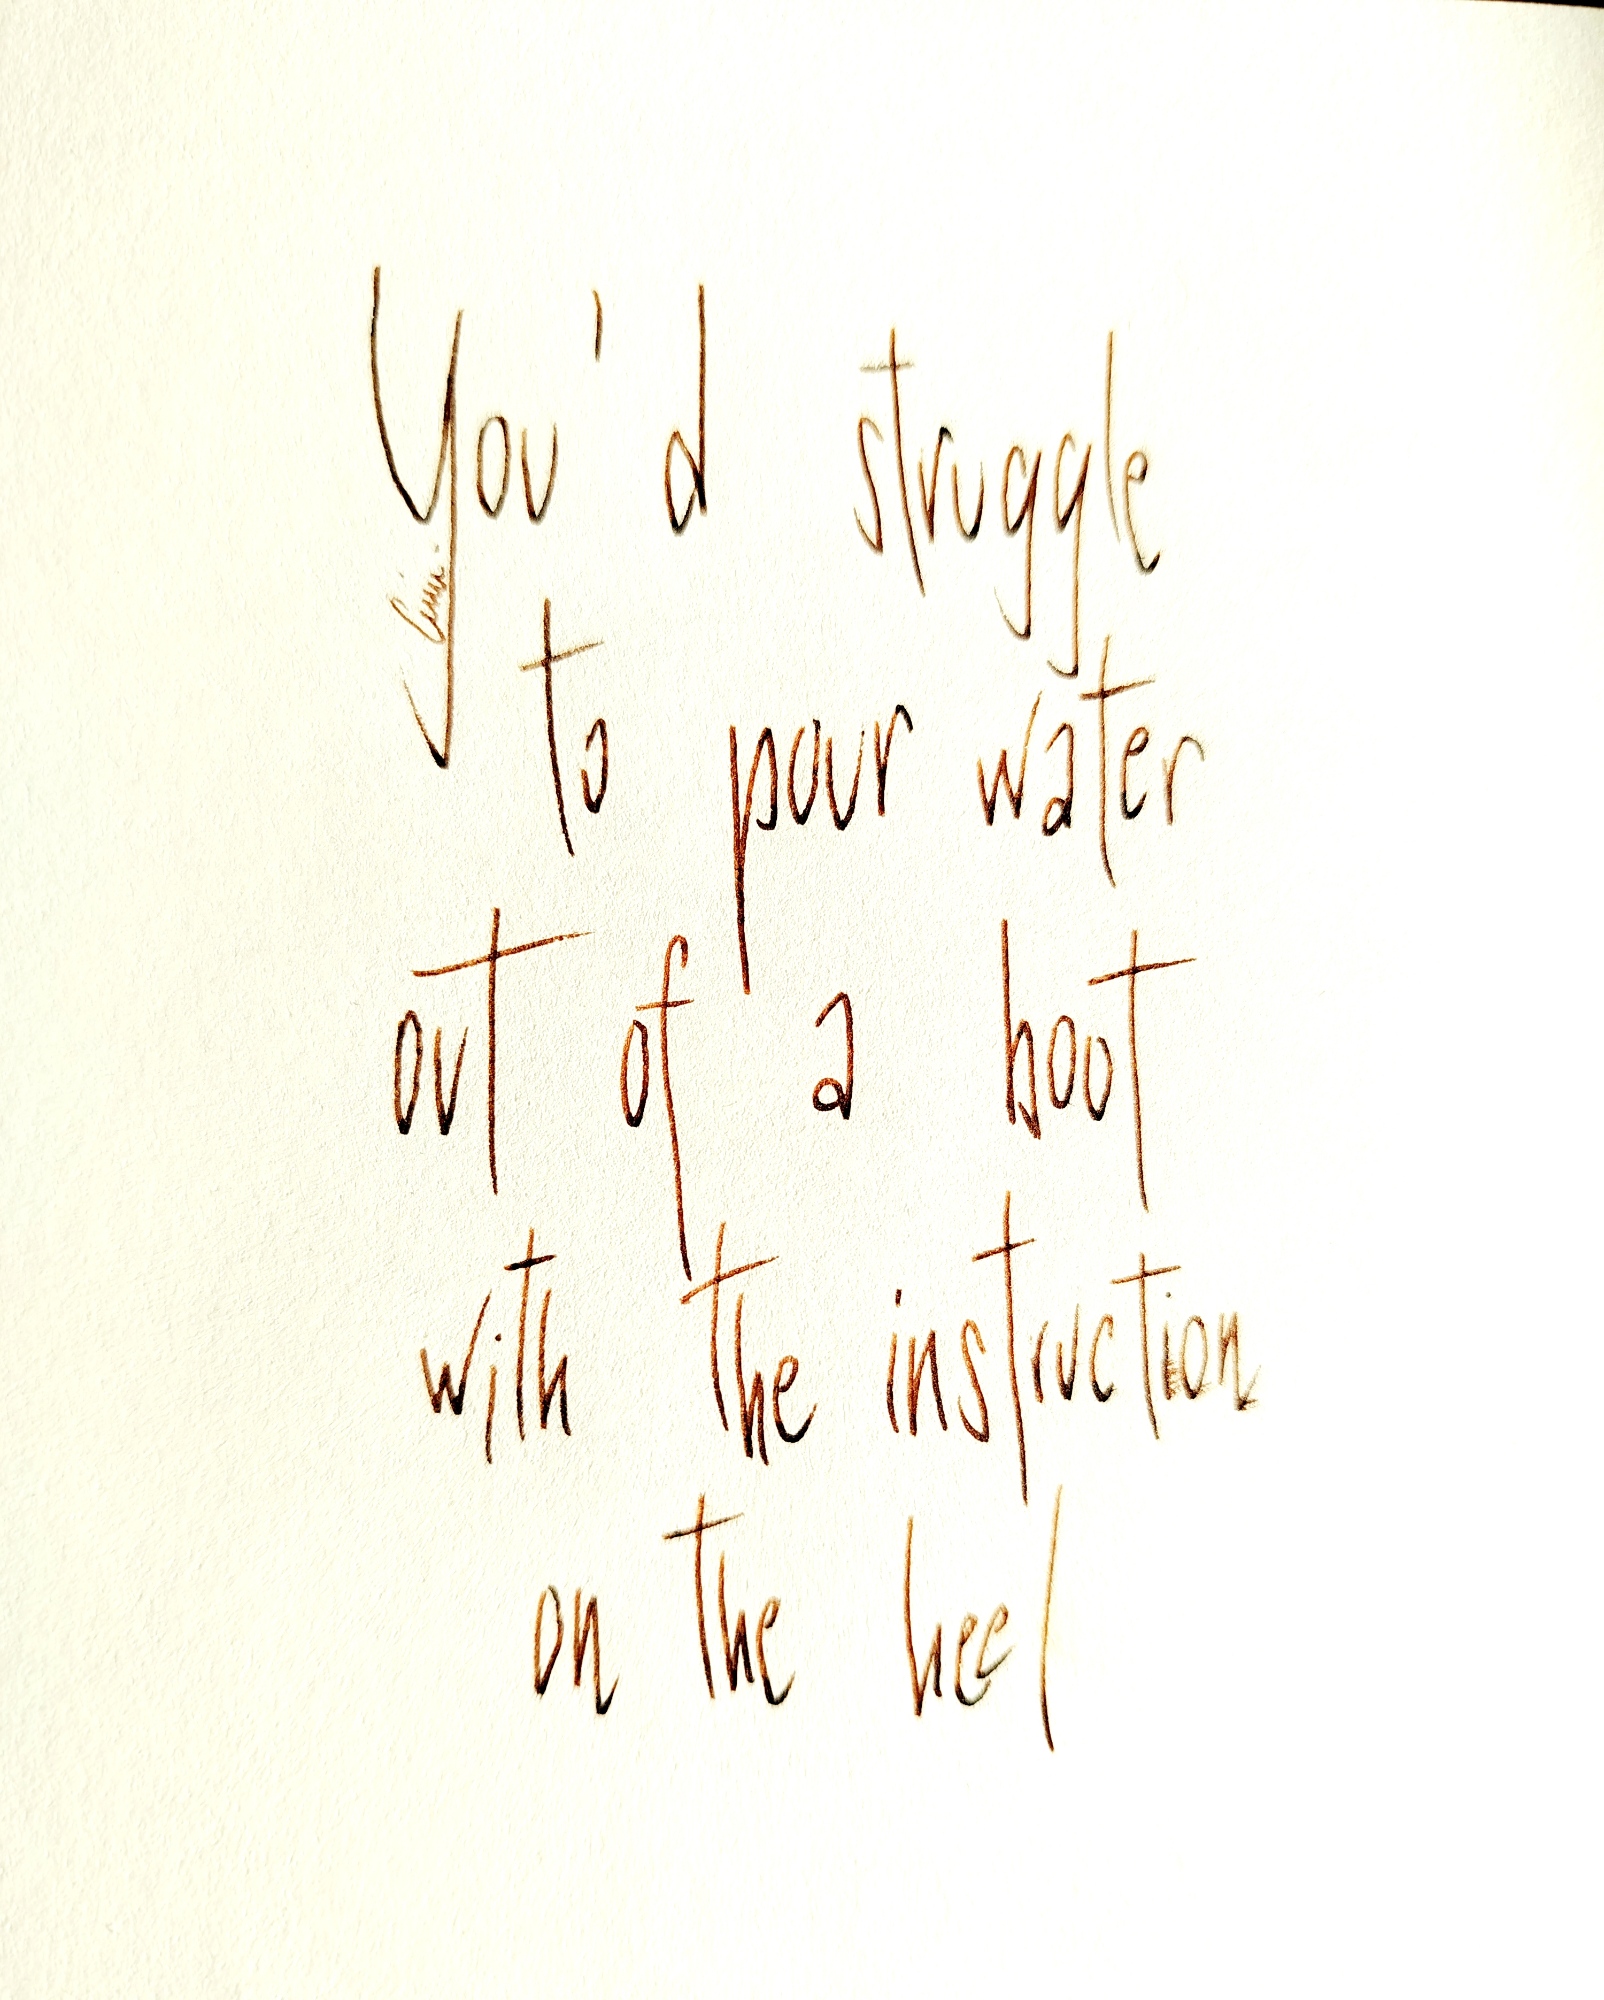 You'd struggle
to pour water
out of a boot
with the instruction
on the heel